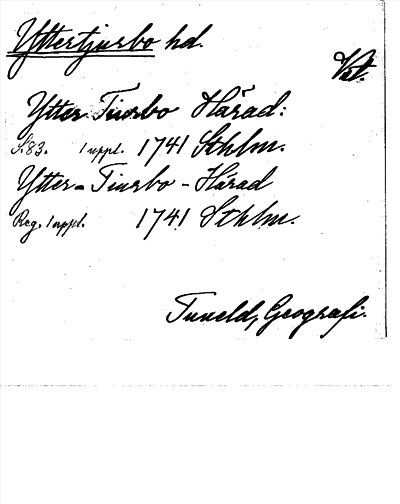 Yttertjurbo hd.
Vst.
Ytter Tiurbo Härad:
S.83. 1 uppl. 1741 Sthlm.
Ytter-Tiurbo-Härad
Reg. 1 uppl. 1741 Sthlm.
Tuneld, Geografi.